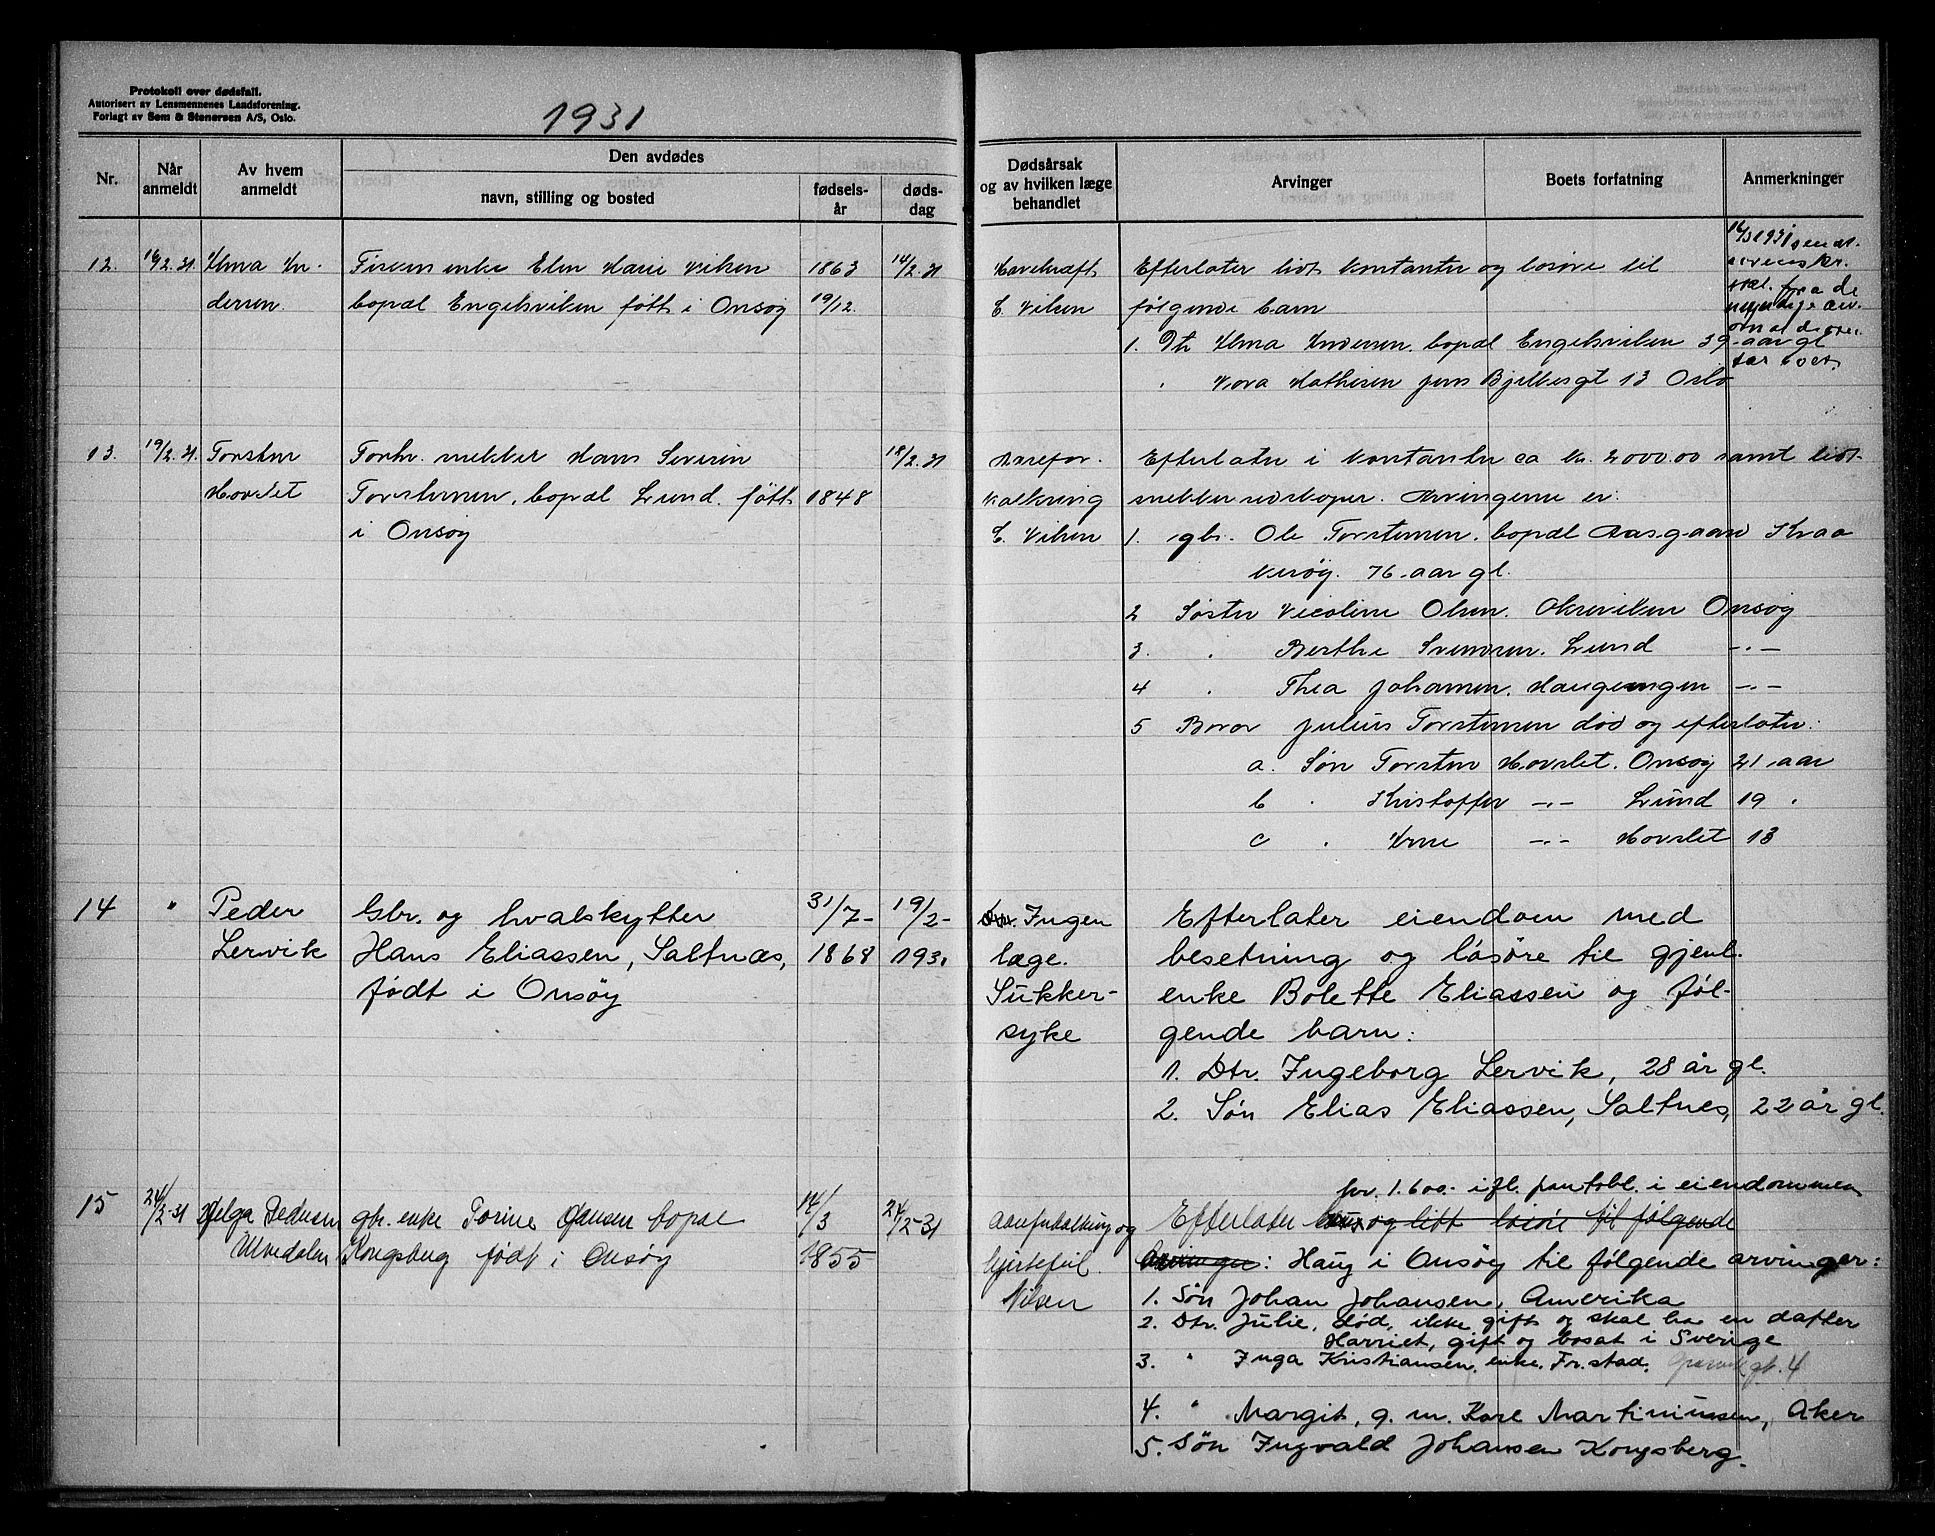 Protokoll over dødsfall.
Autorisert av Lensmennenes Landsforening.
Forlagt av Sem & Stenersen A/S, Oslo.
1931
Nr.
Når anmeldt
Av hvem anmeldt
Den avdødes
navn, stilling og bosted
fødselsår
dødsdag
Dødsårsak og av hvilken læge behandlet
Arvinger
Boets forfatning
Anmerkninger
12. 16/2.31 Alma An- Fiskerenke Elen Marie Viken 1863 14/2.31 Mavekræft Efterlater lidt kontanter og løsøre til
dersen. bopæl Engelsviken født i Onsøy 19/12. E. Nilsen følgende barn
1. Dtr Alma Andersen. bopæl Engelsviken 39 aar gl
" Kora Mathisen Jens Bjelkesgt 13 Oslo
16/3 1931 sendt
fra de
om at de over-
tar boet.
13. 19/2.31. Torsten Forhv. møller Hans Severin 18/2.31 Aarefor- Efterlater i kontanter ca kr. 2000.00 samt lidt
Hovslet Torstensen, bopæl Lund. født 1848 kalkning møller redskaper. Arvingerne er:
i Onsøy E. Nilsen 1. gbr. Ole Torstensen. bopæl Aasgaard Kraa
kerøy. 76 aar gl.
2 Søster Nicoline Olsen. Øreviken Onsøy
3. " Berthe Svendsen. Lund —"—
4 " Thea Johansen. Haugeengen —"—
5 Boror Julius Torstensen død og efterlater:
a. Søn Torsten Hovslet. Onsøy 21 aar
b " Kristoffer —"— Lund 19 "
c " Arne —"— Hovslet 13
14 " Peder Gbr. og hvalskytter 31/7- 19/2- Ingen Efterlater eiendom med
Lervik Hans Eliassen, Saltnæs, 1868 1931 læge. besetning og løsøre til gjenl.
født i Onsøy Sukker- enke Bolette Eliassen og føl-
syke gende barn:
1. Dtr. Ingeborg Lervik, 28 år gl.
2. Søn Elias Eliassen, Saltnes, 22 år gl.
kr. 1.600.- ifl. pantobl. i eiendommen
15 24/2-31 Helga Pedersen gbr. enke Torine Hansen bopæl 14/3 24/2-31 Aareforkalkning og Efterlater og litt løsøre til følgende
Ulvedalen Kongsberg født i Onsøy 1855 hjertefeil. Arvinger: Haug i Onsøy til følgende arvinger:
Nilsen 1. Søn Johan Johansen, Amerika
2. Dtr. Julie, død, ikke gift og skal ha en datter
Harriet, gift og bosat i Sverige
3. " Inga Kristiansen, enke, Fr.stad. gt. 4
4. " Margit, g. m. Karl Martinussen, Aker
5. Søn Ingvald Johansen Kongsberg.